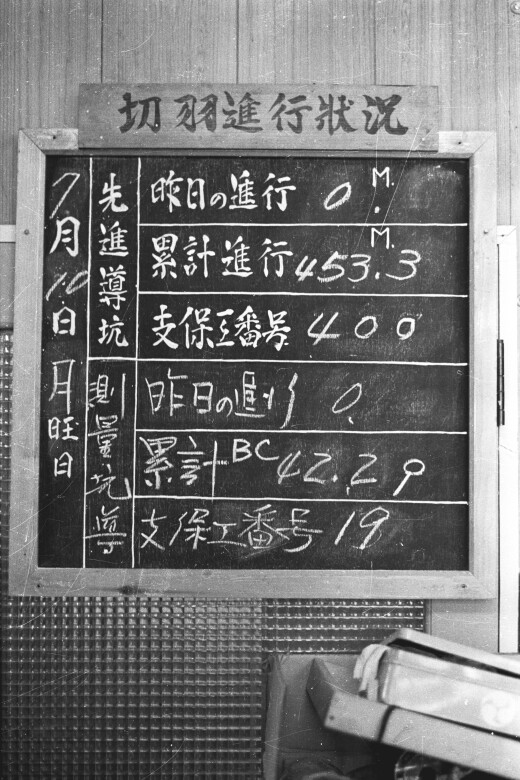 切羽進行狀況
7月10日月旺日
先進導坑
昨日の進行 0. M.
累計進行 453.3 M.
支保工番号 400
測量坑導
昨日の進行 0.
累計 BC 42.29
支保工番号 19